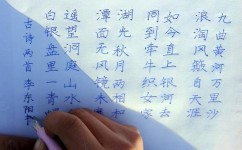 九曲黄河万里沙
浪淘风簸自天涯
如今直上银河去
同到牵牛织女家
湖光秋月两相和
潭面无风镜未磨
遥望洞庭山水
白银盘里一青
古诗两首 李东阳